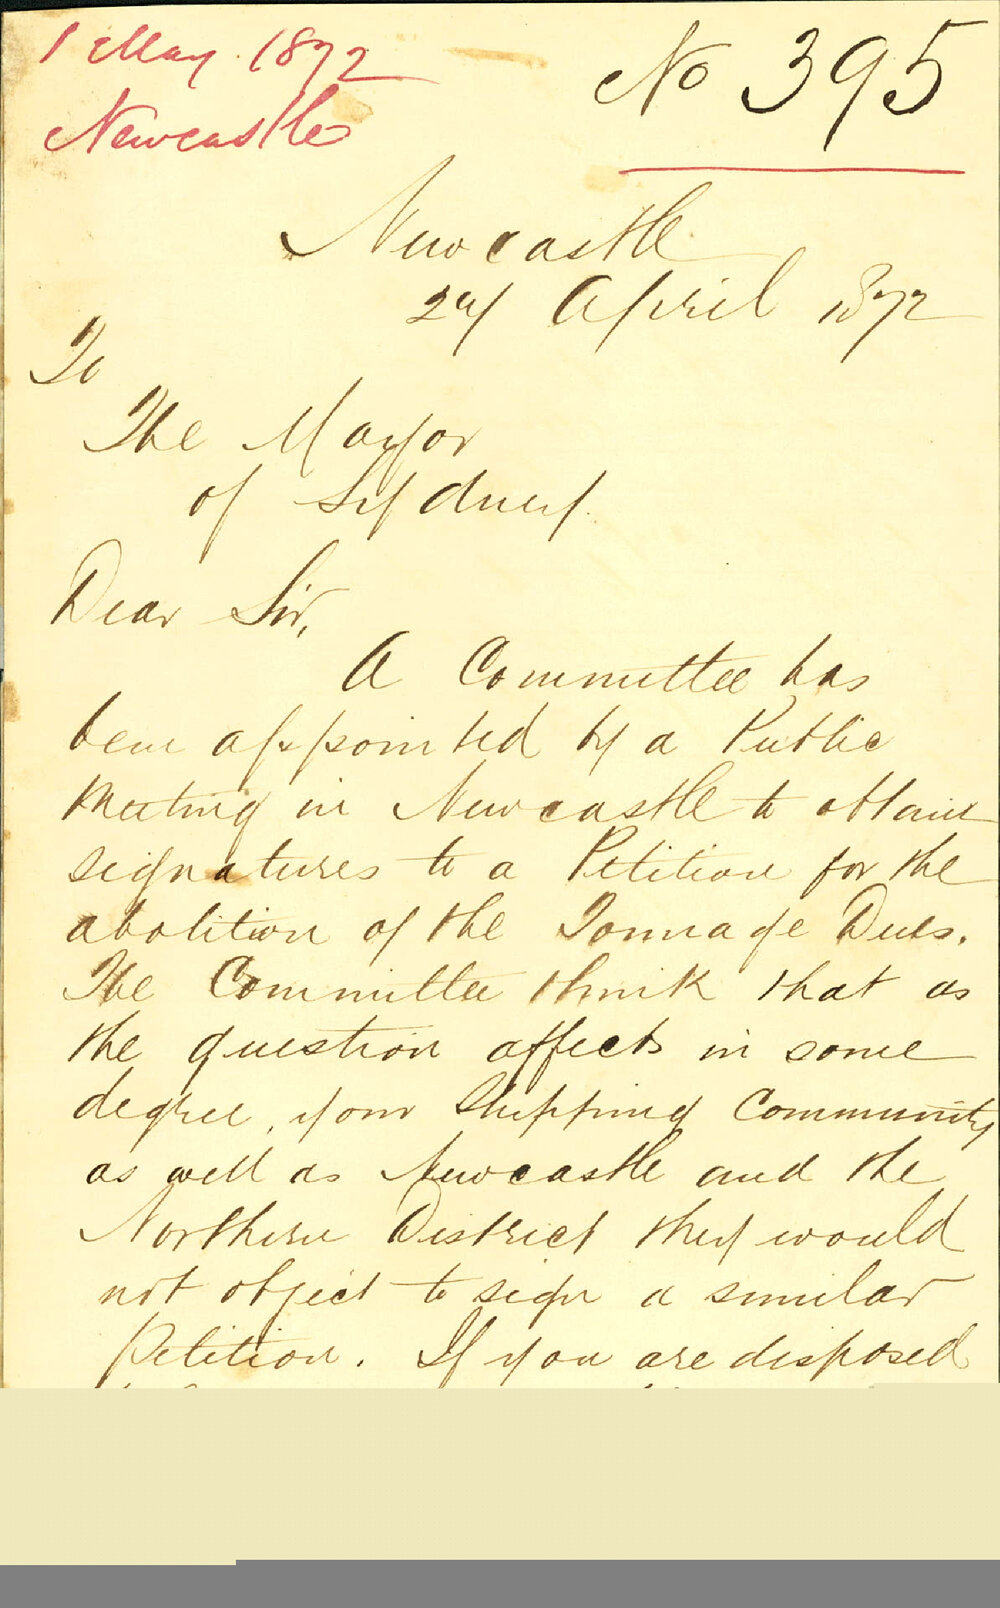 1 May 1872
Newcastle
No 395
Newcastle
April 1872
To
The Mayor
of Sydney
Dear Sir,
A Committee has
been appointed by a Public
Meeting in Newcastle to obtain
signatures to a Petition for the
abolition of the Tonnage Dues.
The Committee think that as
the question affects in some
degree, your Shipping Community
as well as Newcastle and the
Northern District they would
not object to sign a similar
Petition. If you are disposed